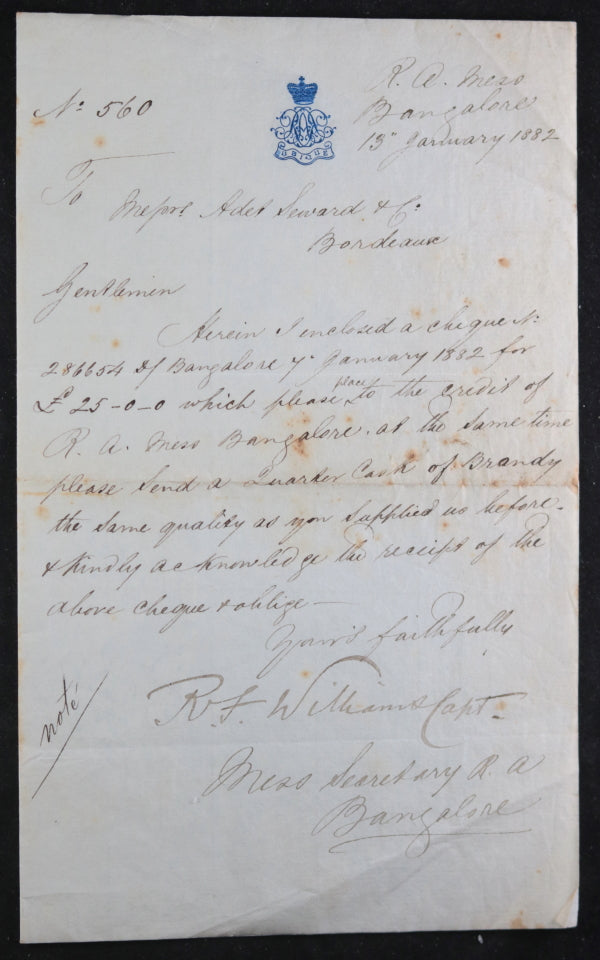 R. A. Mess
No. 560
Bangalore
13" January 1882
UBIQUE
To
Messrs. Adet Seward & Co.
Bordeaux
Gentlemen
Herein I enclosed a cheque No.
286654 d/ Bangalore 7. January 1882 for
£ 25-0-0 which please place to the credit of
R. A. Mess Bangalore. at the same time
please send a Quarter Cask of Brandy
the same quality as you supplied us before.
& kindly acknowledge the receipt of the
above cheque & oblige —
Your's faithfully
R. F. Williams Capt.
noté
Mess Secretary R. A
Bangalore